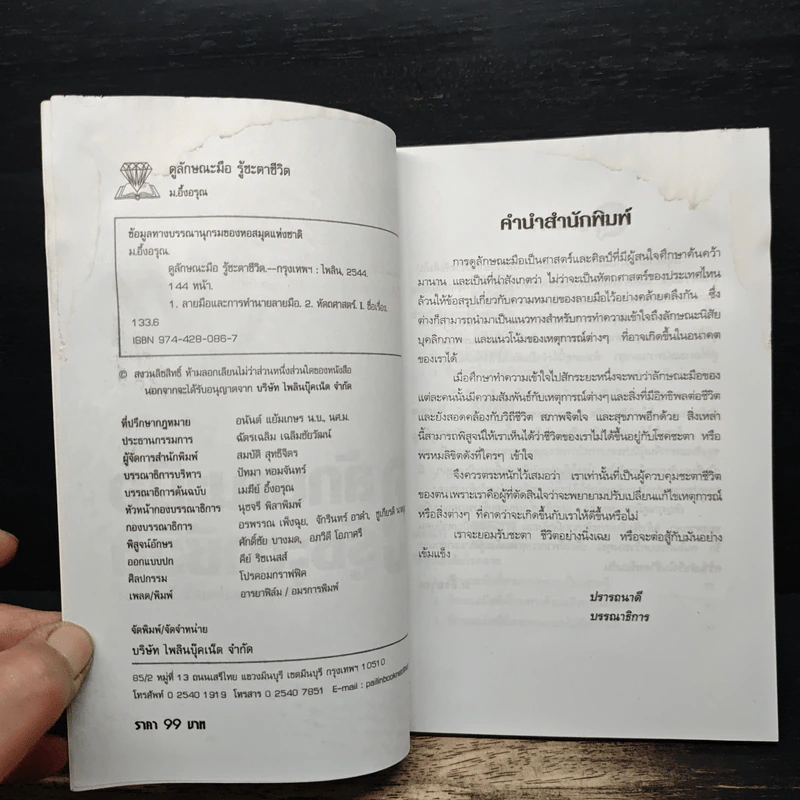 ดูลักษณะมือ รู้ชะตาชีวิต
ม.อึ้งอรุณ
ข้อมูลทางบรรณานุกรมของหอสมุดแห่งชาติ
ม.อึ้งอรุณ.
ดูลักษณะมือ รู้ชะตาชีวิต.--กรุงเทพฯ : ไพลิน, 2544.
144 หน้า.
1. ลายมือและการทำนายลายมือ. 2. หัตถศาสตร์. I. ชื่อเรื่อง.
133.6
ISBN 974-428-086-7
© สงวนลิขสิทธิ์ ห้ามลอกเลียนไม่ว่าส่วนหนึ่งส่วนใดของหนังสือ
นอกจากจะได้รับอนุญาตจาก บริษัท ไพลินบุ๊คเน็ต จำกัด
ที่ปรึกษากฎหมาย อนันต์ แย้มเกษร น.บ., นศ.ม.
ประธานกรรมการ ฉัตรเฉลิม เฉลิมชัยวัฒน์
ผู้จัดการสำนักพิมพ์ สมบัติ สุทธิจิตร
บรรณาธิการบริหาร ปัทมา หอมจันทร์
บรรณาธิการต้นฉบับ เมธีย์ อึ้งอรุณ
หัวหน้ากองบรรณาธิการ นุชจรี พิลาพิมพ์
กองบรรณาธิการ อรพรรณ เพ็งฉุย, จักรินทร์ อาดำ,
พิสูจน์อักษร ศักดิ์ชัย บางมด, อภวิดี โอภาศรี
ออกแบบปก ดีย์ ริชเนสส์
ศิลปกรรม โปรคอมกราฟฟิค
เพลต/พิมพ์ อารยาฟิล์ม / อมรการพิมพ์
จัดพิมพ์/จัดจำหน่าย
บริษัท ไพลินบุ๊คเน็ต จำกัด
85/2 หมู่ที่ 13 ถนนเสรีไทย แขวงมีนบุรี เขตมีนบุรี กรุงเทพฯ 10510
โทรศัพท์ 0 2540 1919 โทรสาร 0 2540 7851 E-mail :
ราคา 99 บาท
คำนำสำนักพิมพ์
การดูลักษณะมือเป็นศาสตร์และศิลป์ที่มีผู้สนใจศึกษาค้นคว้า
มานาน และเป็นที่น่าสังเกตว่า ไม่ว่าจะเป็นหัตถศาสตร์ของประเทศไหน
ล้วนให้ข้อสรุปเกี่ยวกับความหมายของลายมือไว้อย่างคล้ายคลึงกัน ซึ่ง
ต่างก็สามารถนำมาเป็นแนวทางสำหรับการทำความเข้าใจถึงลักษณะนิสัย
บุคลิกภาพ และแนวโน้มของเหตุการณ์ต่างๆ ที่อาจเกิดขึ้นในอนาคต
ของเราได้
เมื่อศึกษาทำความเข้าใจไปสักระยะหนึ่งจะพบว่าลักษณะมือของ
แต่ละคนนั้นมีความสัมพันธ์กับเหตุการณ์ต่างๆและสิ่งที่มีอิทธิพลต่อชีวิต
และยังสอดคล้องกับวิถีชีวิต สภาพจิตใจ และสุขภาพอีกด้วย สิ่งเหล่า
นี้สามารถพิสูจน์ให้เราเห็นได้ว่าชีวิตของเราไม่ได้ขึ้นอยู่กับโชคชะตา หรือ
พรหมลิขิตดังที่ใครๆ เข้าใจ
จึงควรตระหนักไว้เสมอว่า เราเท่านั้นที่เป็นผู้ควบคุมชะตาชีวิต
ของตนเพราะเราคือผู้ที่ตัดสินใจว่าจะพยายามปรับเปลี่ยนแก้ไขเหตุการณ์
หรือสิ่งต่างๆ ที่คาดว่าจะเกิดขึ้นกับเราให้ดีขึ้นหรือไม่
เราจะยอมรับชะตา ชีวิตอย่างนิ่งเฉย หรือจะต่อสู้กับมันอย่าง
เข้มแข็ง
ปรารถนาดี
บรรณาธิการ